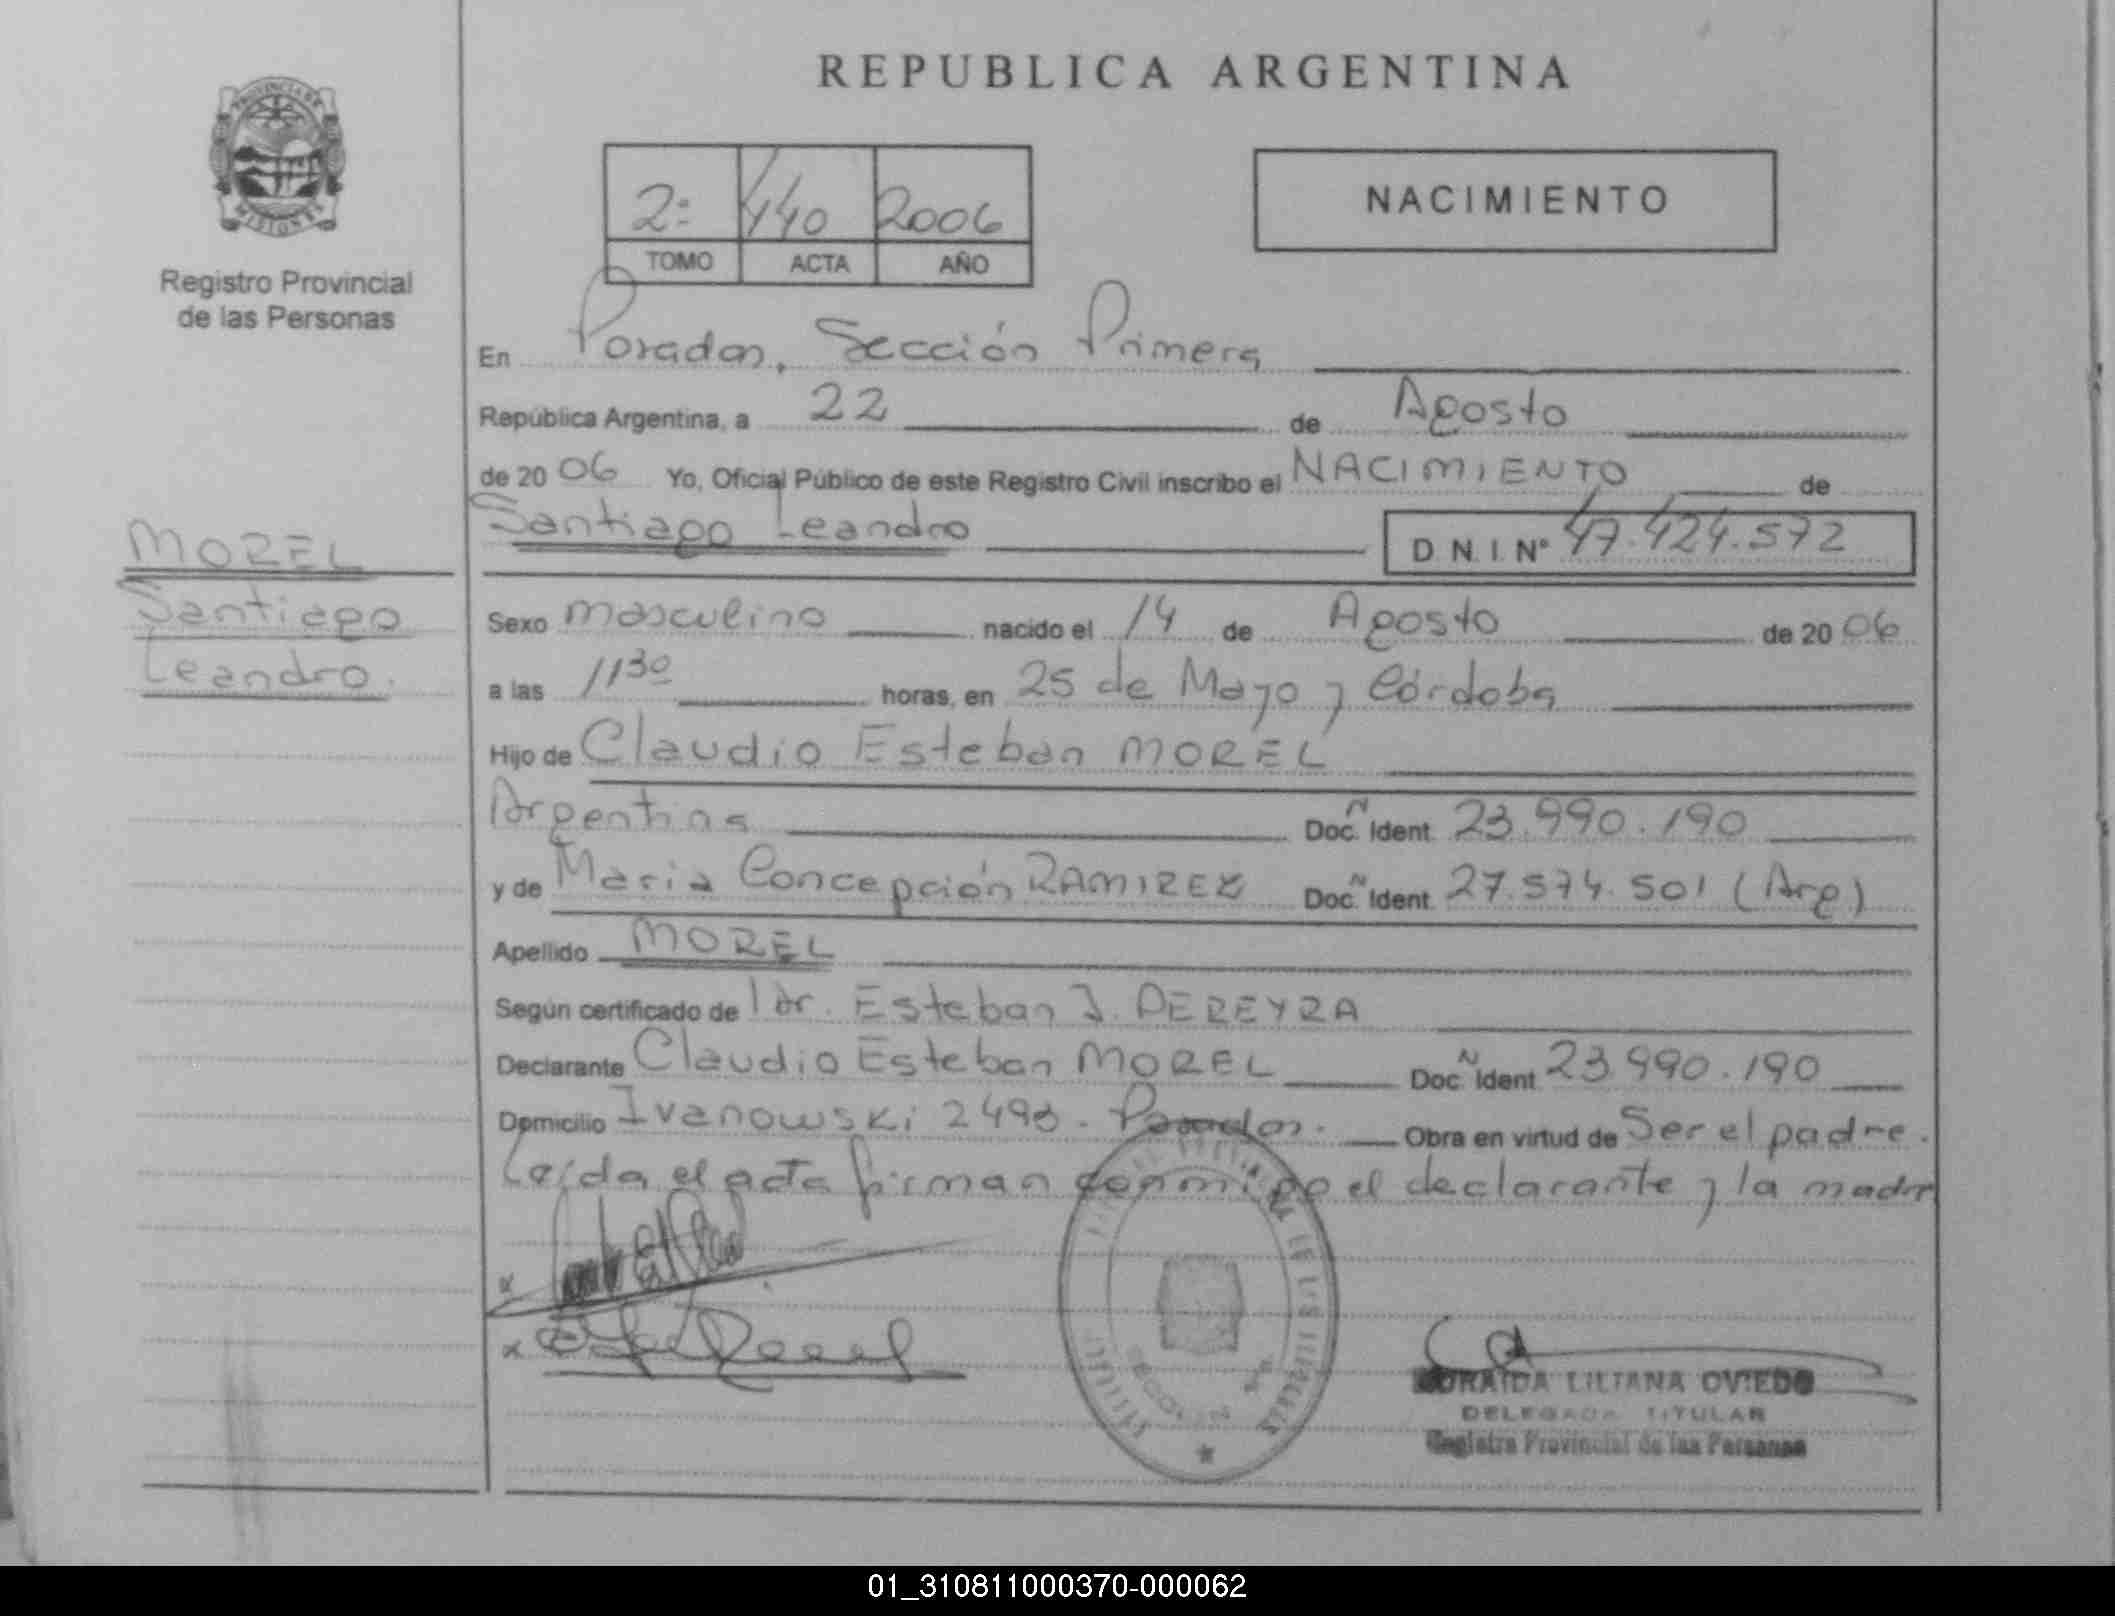 REPUBLICA ARGENTINA
PROVINCIA DE
MISIONES
Registro Provincial
de las Personas
2º 440 2006
TOMO ACTA AÑO
NACIMIENTO
En Posadas, Sección Primera
República Argentina, a 22 de Agosto
de 2006 Yo, Oficial Público de este Registro Civil inscribo el NACIMIENTO de
Santiago Leandro D. N. I. Nº 47.424.572
MOREL
Santiago
Leandro.
Sexo masculino nacido el 14 de Agosto de 2006
a las 11³⁰ horas, en 25 de Mayo y Córdoba
Hijo de Claudio Esteban MOREL
Argentina Doc. Ident. 23.990.190
y de Maria Concepción RAMIREZ Doc. Ident. 27.574.501 (Arg)
Apellido MOREL
Según certificado de Dr. Esteban J. PEREYRA
Declarante Claudio Esteban MOREL Doc. Ident 23.990.190
Domicilio Ivanowski 2498. Posadas. Obra en virtud de Ser el padre.
Leída el acta firman conmigo el declarante y la madre
LILIANA OVIEDO
DELEGADA TITULAR
Registro Provincial de las Personas
01_310811000370-000062